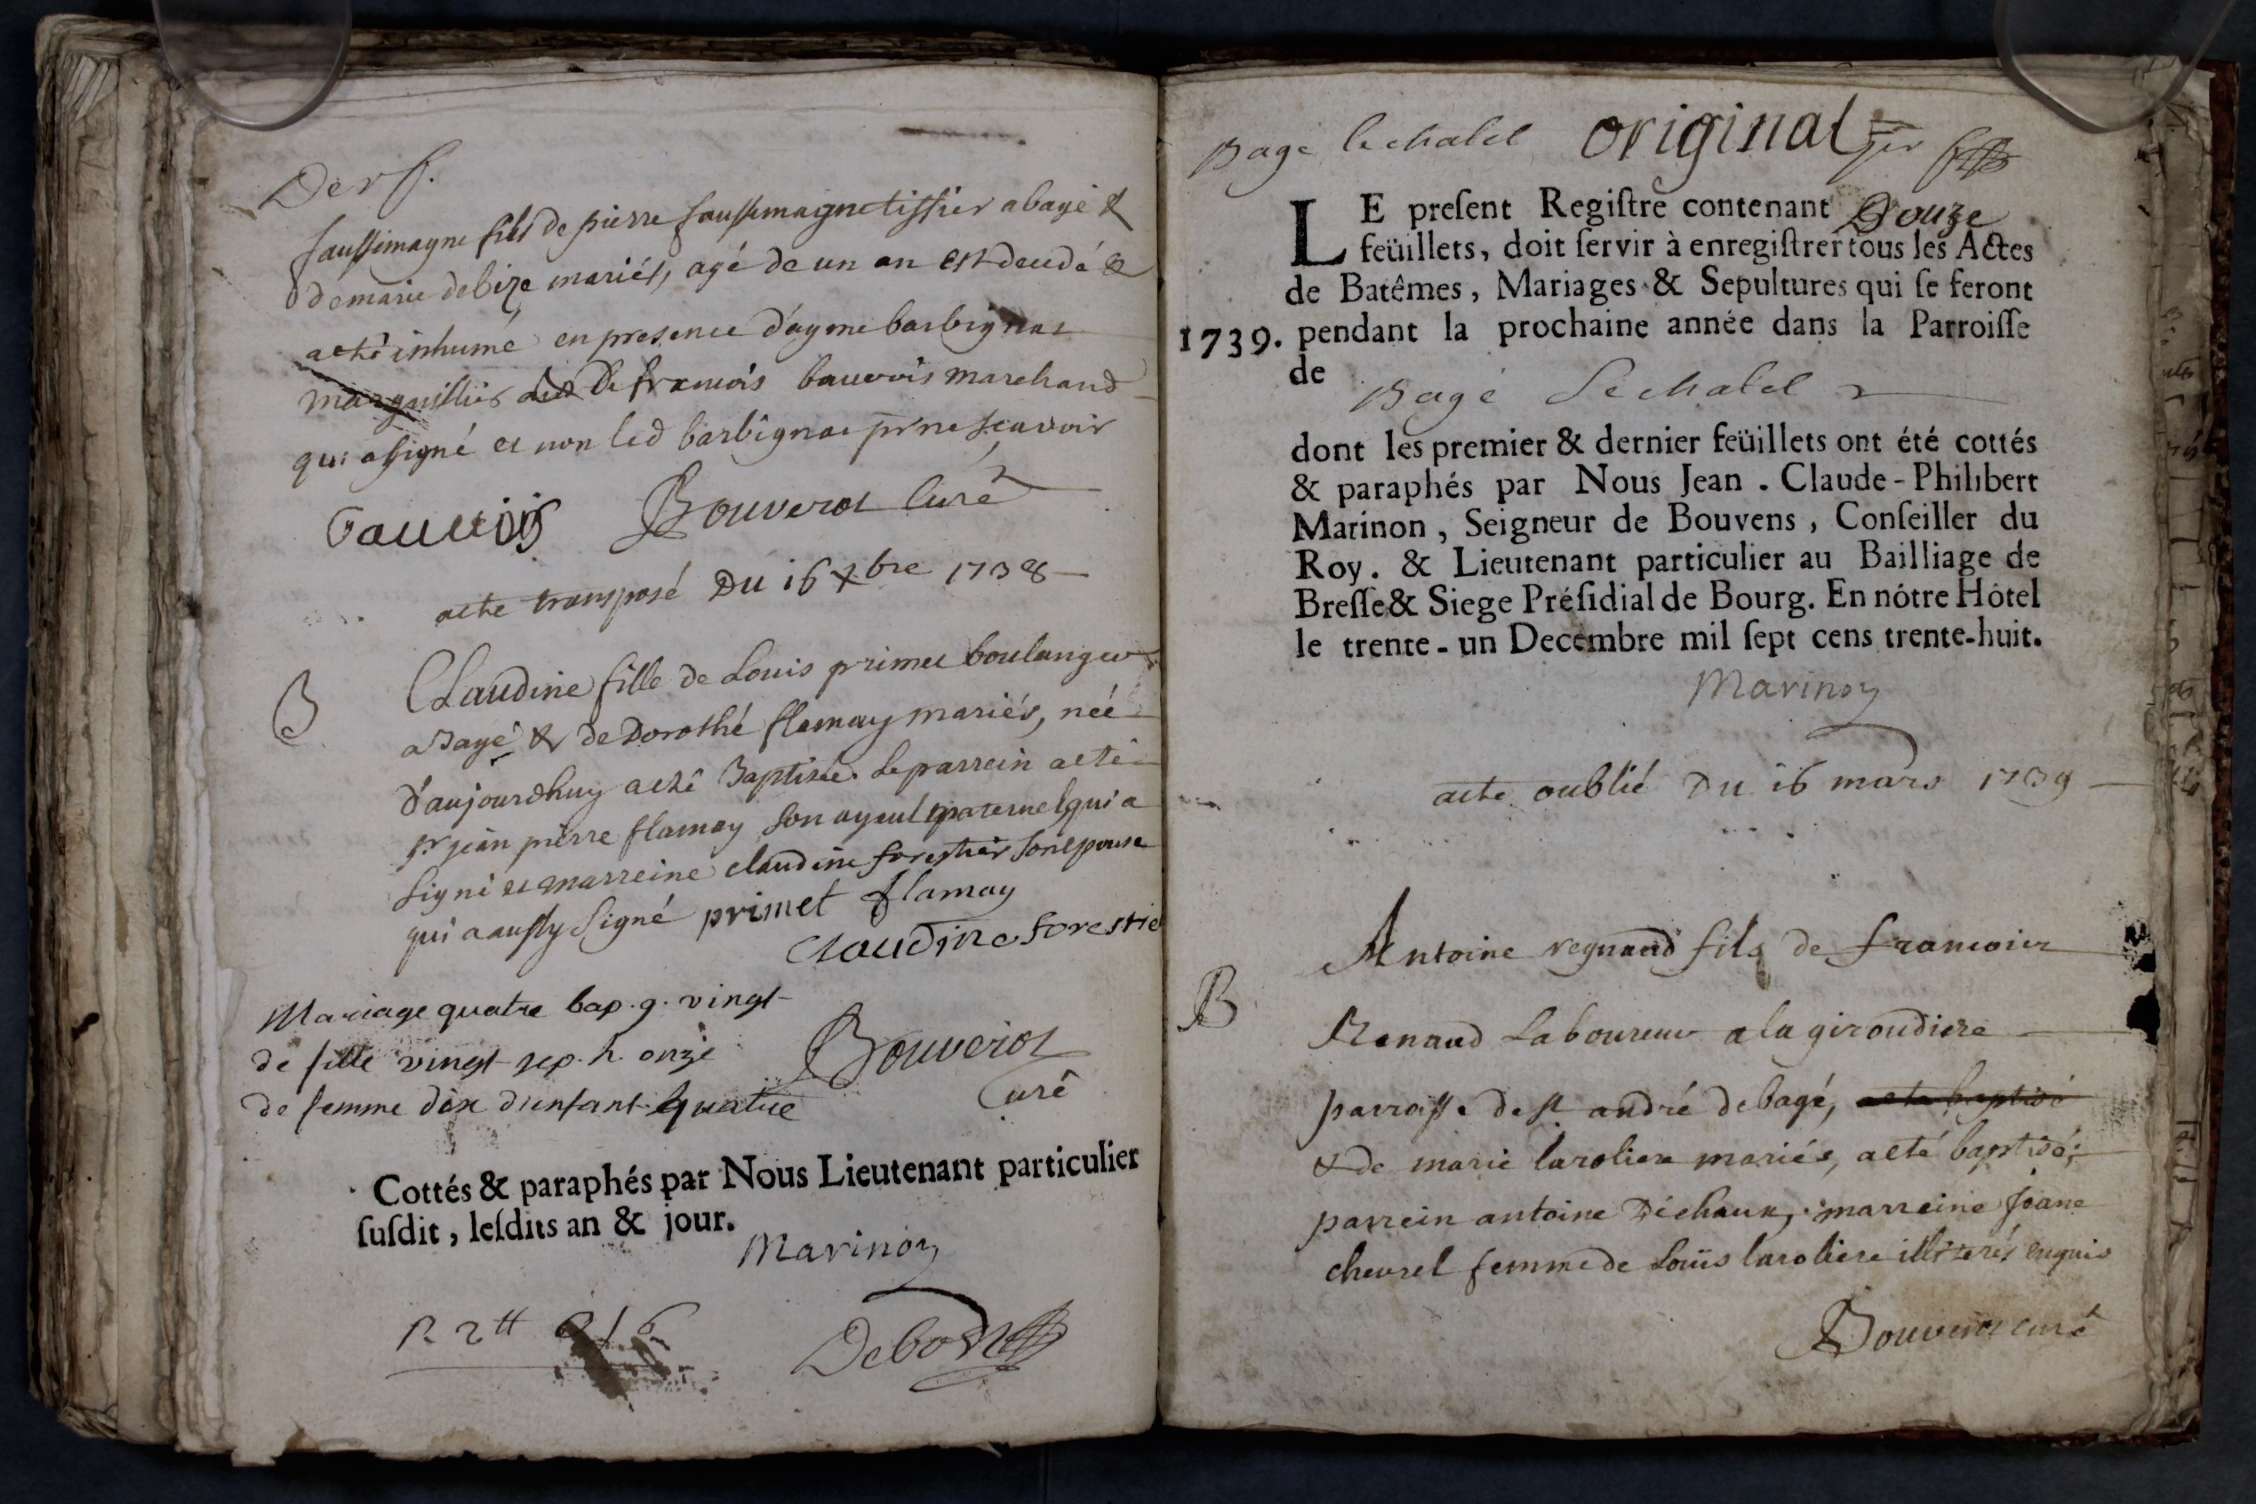 Der f.
faussemagne fils de pierre faussemagne tissier a bagé &
de marie debize mariés, agé de un an est decedé &
a eté inhumé en presence d'ayme barbignac
marguillier de francois bauvois marchand
qui a signé et non led barbignac pr ne scavoir
Bouverot Curé
acte transposé Du 16 xbre 1738
B
Claudine fille de Louis primet boulanger
a Bagé & de Dorothé flamay mariés, neé
d'aujourdhuy a eté Baptisée. Le parrein a eté
sr jean pierre flamay son ayeul maternel qui a
signé et marreine claudine forestier son epouse
qui a aussy signé primet flamay
claudine forestie
Mariage quatre bap. g. vingt
de fille vingt sep. h. onze
de femme dix d'enfant quatre
Bouverot
Curé
Cottés & paraphés par Nous Lieutenant particulier
suſdit, leſdits an & jour.
Marinon
R 2tt 6
Debost
Bage le chatel original
LE preſent Regiſtre contenant Douze
feüillets, doit ſervir à enregiſtrer tous les Actes
de Batêmes, Mariages & Sepultures qui ſe feront
1739. pendant la prochaine année dans la Parroiſſe
de
Bagé Le chatel
dont les premier & dernier feüillets ont été cottés
& paraphés par Nous Jean . Claude - Philibert
Marinon, Seigneur de Bouvens, Conſeiller du
Roy. & Lieutenant particulier au Bailliage de
Breſſe & Siege Préſidial de Bourg. En nótre Hôtel
le trente - un Decembre mil ſept cens trente-huit.
Marinon
acte oublié Du 16 mars 1739
Antoine regnaud fils de francois
B
Renaud Laboureur a la giroudiere
parroisse de st andré de bagé, a eté baptisé
& de marie laroliere mariés, a eté baptisé;
parrein antoine Déchaux, marreine joane
chevrel femme de Loüis laroliere illiterés enquis
Bouverot curé